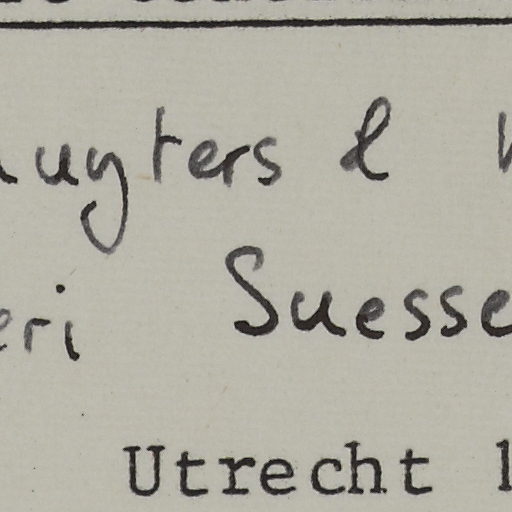 uyters &
eri Suesse
Utrecht